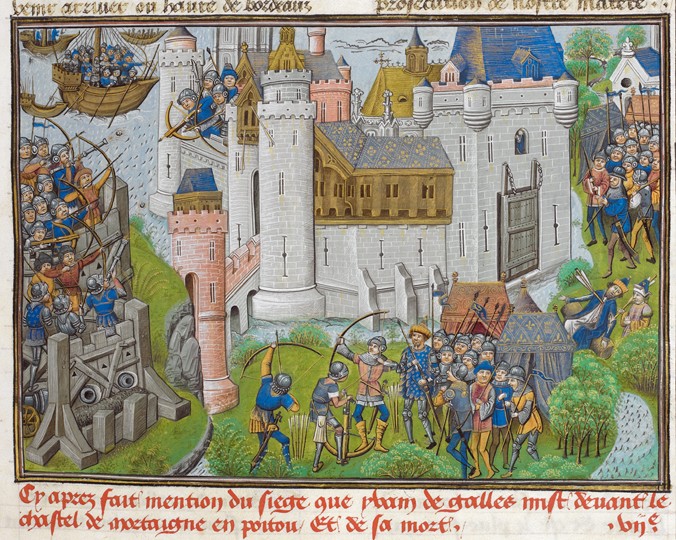 beme arriver ou haure de bordeaux prosecution de nostre matere
Cy aprez fait mention du siege que yvain de galles mist devant le
chastel de mortaigne en poitou / Et de sa mort . . vij e